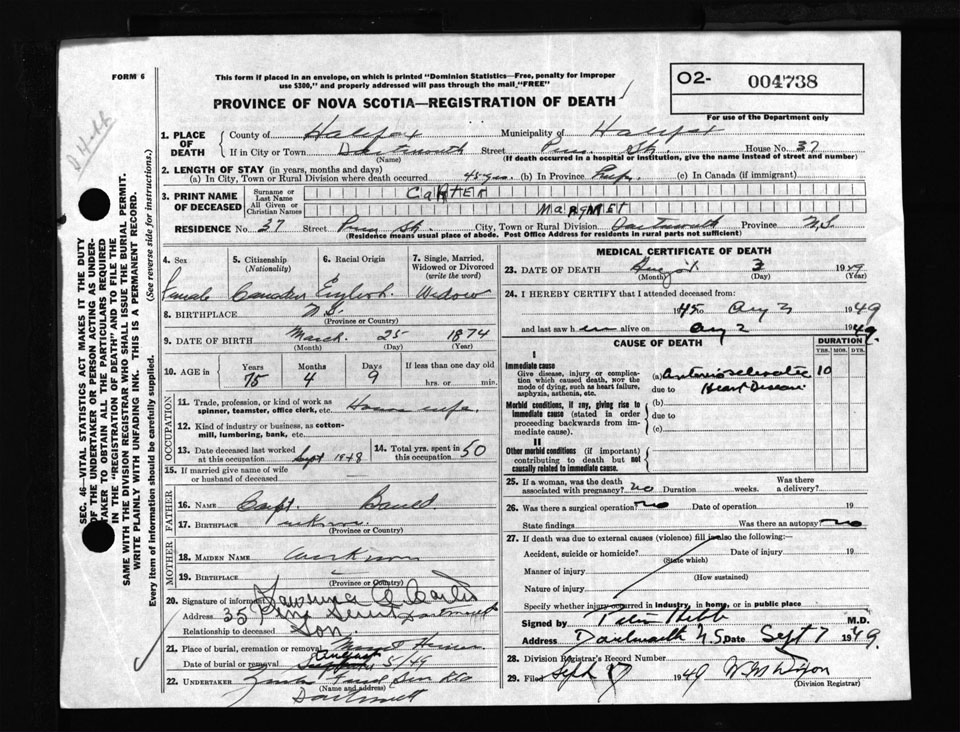 FORM 6
This form if placed in an envelope, on which is printed "Dominion Statistics—Free, penalty for improper
use $300," and properly addressed will pass through the mail "FREE"
O2- 004738
For use of the Department only
PROVINCE OF NOVA SCOTIA—REGISTRATION OF DEATH
SEC. 46—VITAL STATISTICS ACT MAKES IT THE DUTY
OF THE UNDERTAKER OR PERSON ACTING AS UNDER-
TAKER TO OBTAIN ALL THE PARTICULARS REQUIRED
IN THE "REGISTRATION OF DEATH" AND TO FILE THE
SAME WITH THE DIVISION REGISTRAR WHO SHALL ISSUE THE BURIAL PERMIT.
WRITE PLAINLY WITH UNFADING INK. THIS IS A PERMANENT RECORD.
Every item of information should be carefully supplied. (See reverse side for instructions.)
1. PLACE OF DEATH County of Halifax Municipality of Halifax
If in City or Town Dartmouth Street St. House No. 37
(Name) (If death occurred in a hospital or institution, give the name instead of street and number)
2. LENGTH OF STAY (in years, months and days)
(a) In City, Town or Rural Division where death occurred 45 yrs. (b) In Province (c) In Canada (if immigrant)
3. PRINT NAME OF DECEASED Surname or Last Name CARTER
All Given or Christian Names MARGMET
RESIDENCE No. 37 Street St. City, Town or Rural Division Dartmouth Province N.S.
(Residence means usual place of abode. Post Office Address for residents in rural parts not sufficient)
4. Sex 5. Citizenship (Nationality) 6. Racial Origin 7. Single, Married, Widowed or Divorced (write the word)
Female Canadian English Widow
8. BIRTHPLACE N.S.
(Province or Country)
9. DATE OF BIRTH March 25 1874
(Month) (Day) (Year)
10. AGE in Years Months Days If less than one day old
75 4 9 hrs. or min.
OCCUPATION
11. Trade, profession, or kind of work as
spinner, teamster, office clerk, etc. House wife
12. Kind of industry or business, as cotton-
mill, lumbering, bank, etc.
13. Date deceased last worked at this occupation Sept 1948 14. Total yrs. spent in this occupation 50
15. If married give name of wife
or husband of deceased
FATHER
16. Name Capt.
17. Birthplace unknown
(Province or Country)
MOTHER
18. Maiden Name unknown
19. Birthplace
(Province or Country)
20. Signature of informant
Address 35 Dartmouth
Relationship to deceased Son.
21. Place of burial, cremation or removal Mount Hermon
Date of burial or removal August 5/49
22. UNDERTAKER
(Name and address)
Dartmouth
MEDICAL CERTIFICATE OF DEATH
23. DATE OF DEATH August 3 1949
(Month) (Day) (Year)
24. I HEREBY CERTIFY that I attended deceased from:
1945 to Aug 3 1949
and last saw h er alive on Aug 2 1949.
CAUSE OF DEATH DURATION
YRS. MOS. DYS.
I
Immediate cause
Give disease, injury or complica-
tion which caused death, NOT the
mode of dying, such as heart failure,
asphyxia, asthenia, etc.
(a) Arteriosclerotic 10
due to Heart Disease
Morbid conditions, if any, giving rise to
immediate cause (stated in order
proceeding backwards from im-
mediate cause).
(b)
due to
(c)
II
Other morbid conditions (if important)
contributing to death but not
causally related to immediate cause.
25. If a woman, was the death associated with pregnancy? no Duration weeks. Was there a delivery?
26. Was there a surgical operation? no Date of operation 19
State findings Was there an autopsy? no
27. If death was due to external causes (violence) fill in also the following:
Accident, suicide or homicide? Date of injury 19
(State which)
Manner of injury
(How sustained)
Nature of injury
Specify whether injury occurred in industry, in home, or in public place
Signed by Hebb M.D.
Address Dartmouth N.S. Date Sept 7 1949.
28. Division Registrar's Record Number
29. Filed Sept 1949
(Division Registrar)